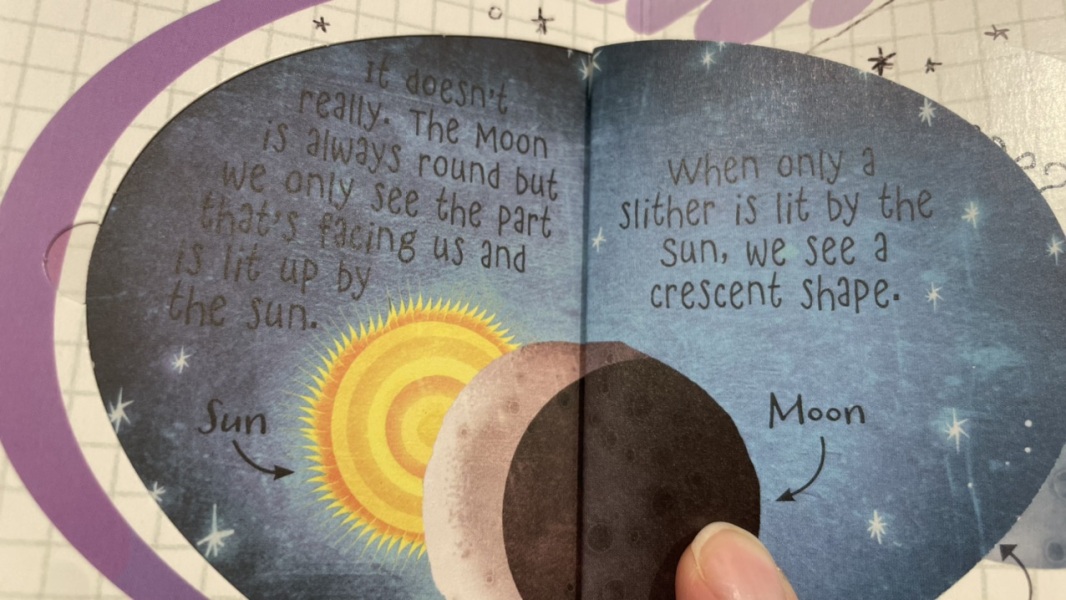 it doesn't
really. The Moon
is always round but
we only see the part
that's facing us and
is lit up by
the sun.
When only a
slither is lit by the
sun, we see a
crescent shape.
Sun
Moon